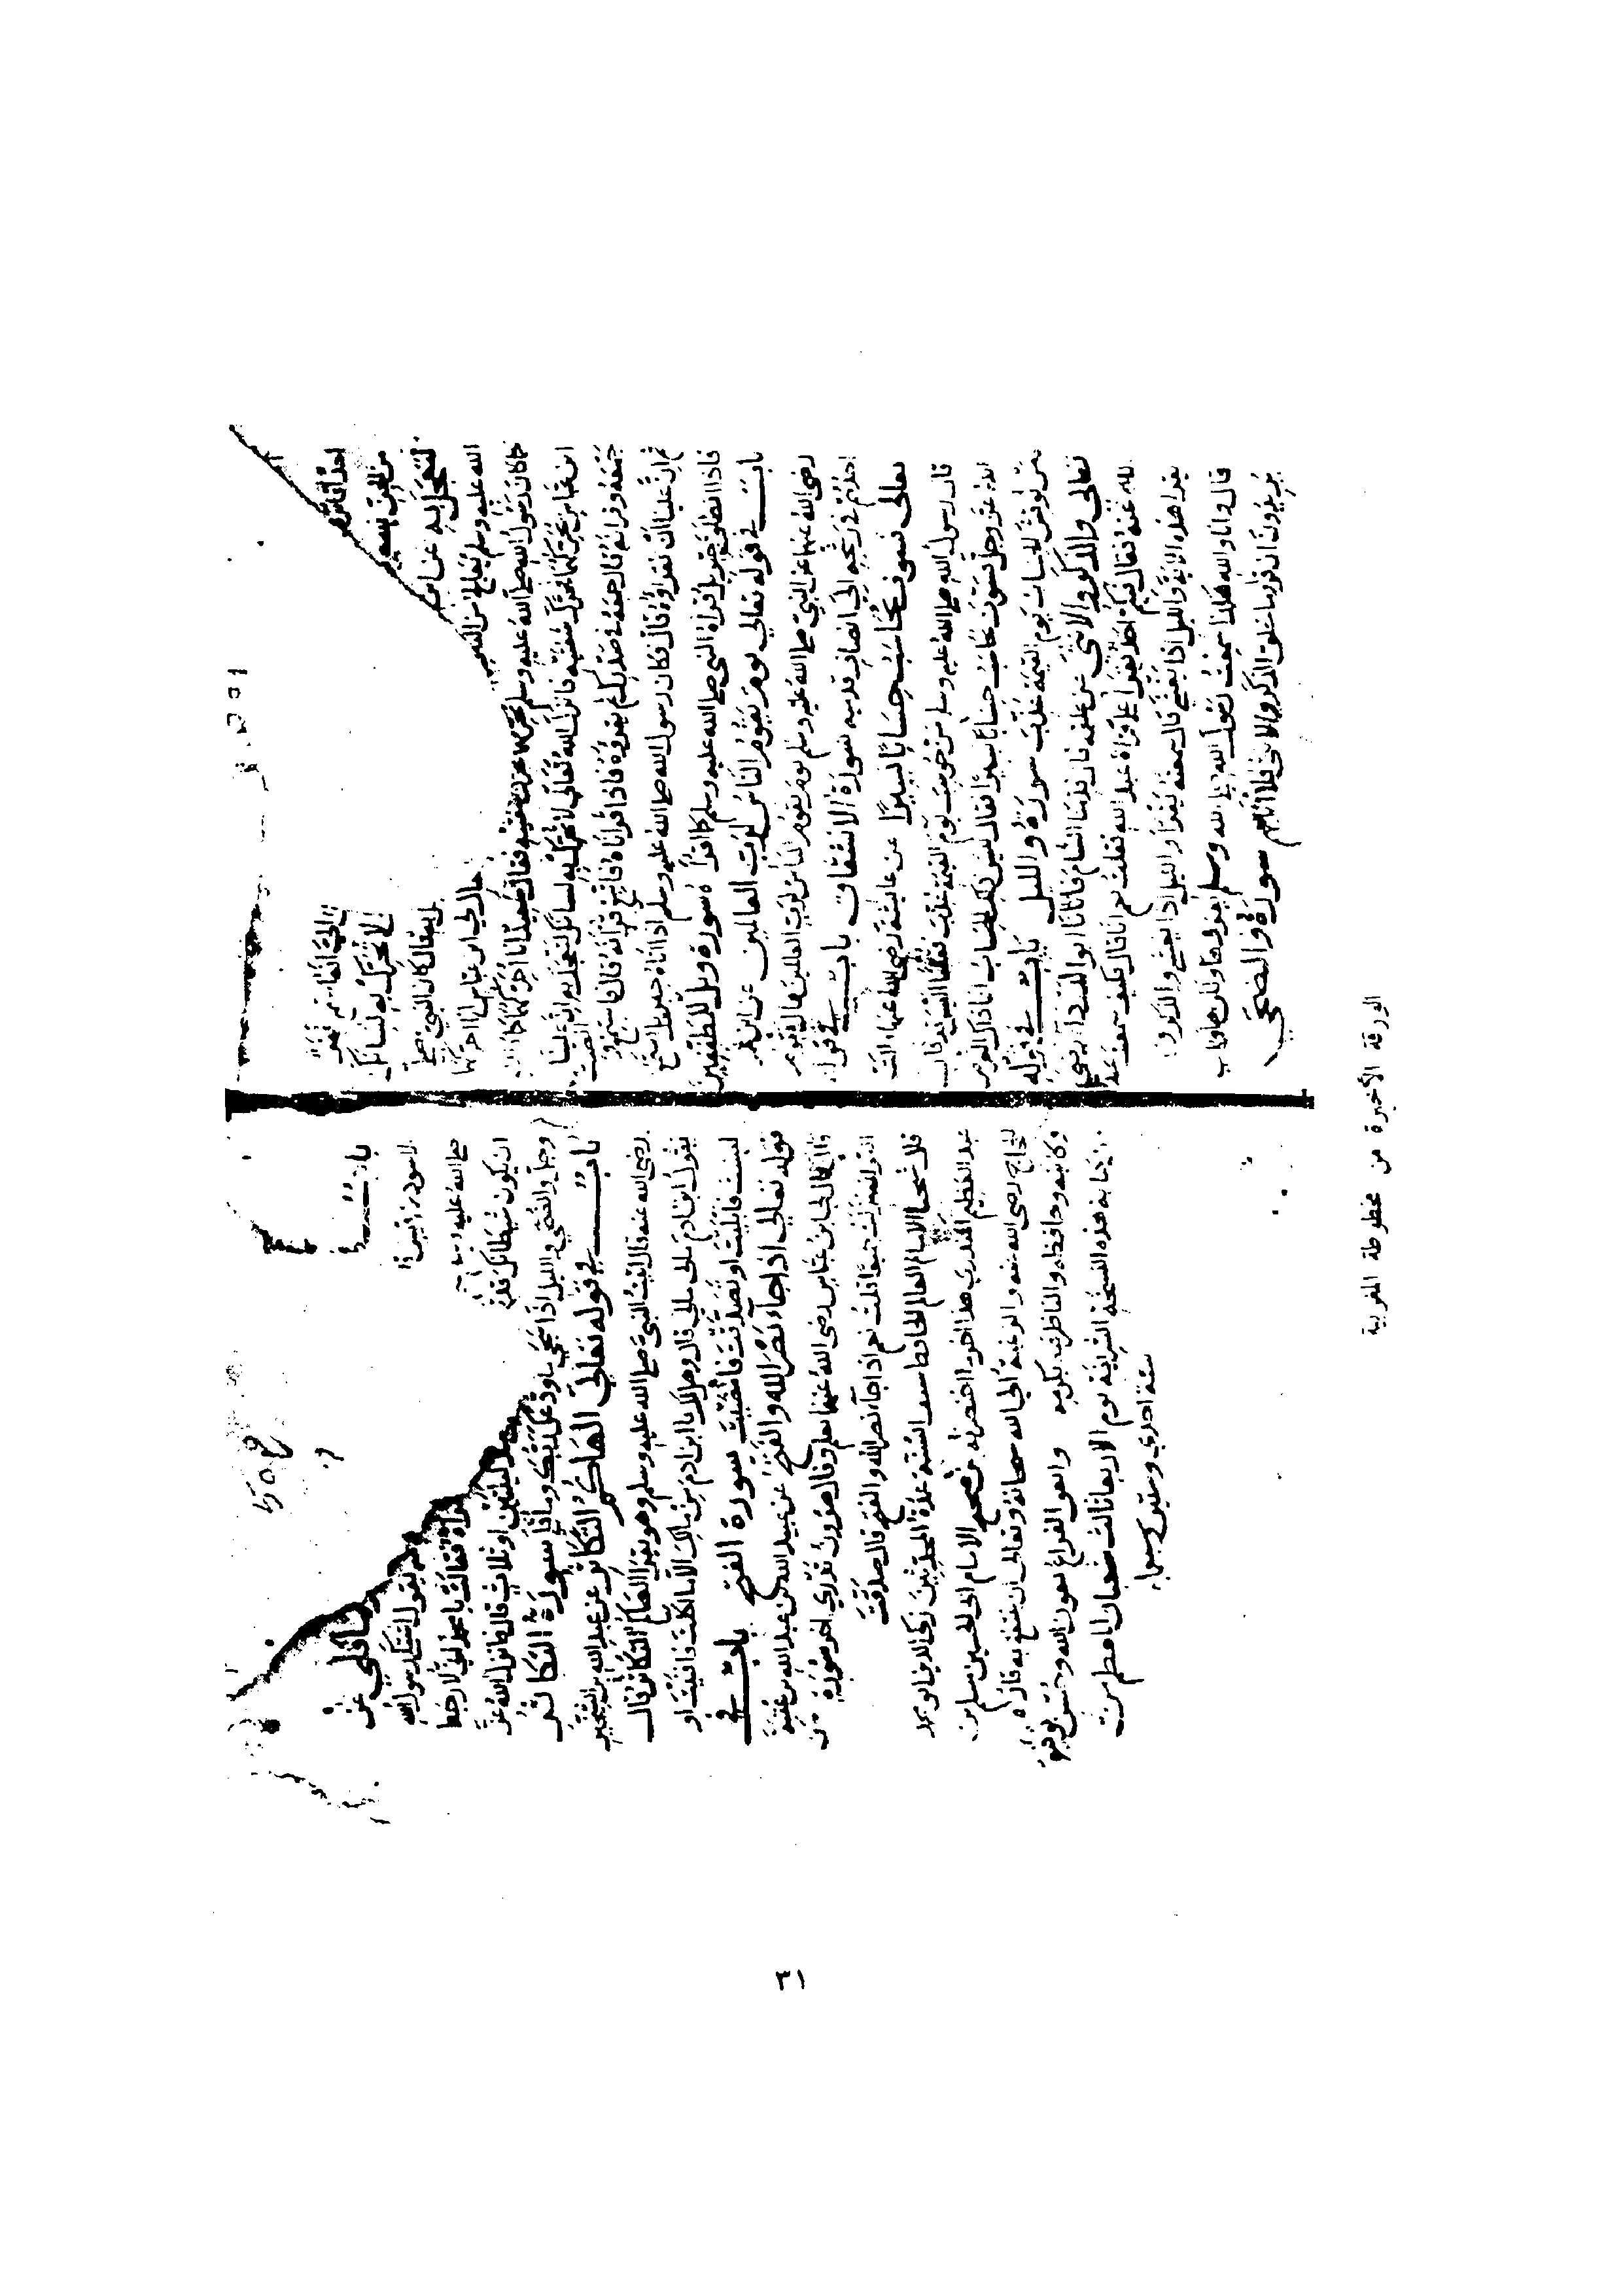 لا تحرك به لسانك
لتعجل به عن ابن
الله عليه وسلم يعالج من التنزيل
كما كان رسول الله صلى الله عليه وسلم يحركهما فقال سعيد انا احركهما كما كان
ابن عباس يحركهما فحرك شفتيه فانزل الله تعالى لا تحرك به لسانك لتعجل به ان علينا
جمعه وقرآنه قال جمعه في صدرك ثم تقرؤه فاذا قرأناه فاتبع قرآنه قال فاستمع وانصت
ثم ان علينا ان تقرؤه قال فكان رسول الله صلى الله عليه وسلم اذا اتاه جبريل استمع
فاذا انطلق جبريل قرأه النبي صلى الله عليه وسلم كما اقرأه سورة ويل للمطففين
باب في قوله تعالى يوم يقوم الناس لرب العالمين عن ابن عمر
رضي الله عنهما عن النبي صلى الله عليه وسلم يوم يقوم الناس لرب العالمين قال يقوم
احدهم في رشحه الى انصاف اذنيه سورة الانشقاق باب في قوله
تعالى فسوف يحاسب حسابا يسيرا عن عائشة رضي الله عنها قالت
قال رسول الله صلى الله عليه وسلم من حوسب يوم القيمة عذب فقلت اليس قد قال
الله عز وجل فسوف يحاسب حسابا يسيرا فقال ليس ذاك الحساب انما ذاك العرض
من نوقش الحساب يوم القيمة عذب سورة والليل باب في قوله
تعالى والذكر والانثى عن علقمة قال قدمنا الشام فاتانا ابو الدرداء رضي
الله عنه فقال فيكم احد يقرأ على قراءة عبد الله فقلت نعم انا قال فكيف سمعت عبد الله
يقرأ هذه الآية والليل اذا يغشى قال سمعته يقرأ والليل اذا يغشى والذكر والانثى
قال وانا والله هكذا سمعت رسول الله صلى الله عليه وسلم يقرؤها ولكن هؤلاء
يريدون ان اقرأ وما خلق الذكر والانثى فلا اتابعهم سورة والضحى
باب وما قلى عن
الاسود بن قيس يقول اشتكى رسول الله
صلى الله عليه وسلم امرأة فقالت يا محمد اني لارجو
ان يكون شيطانك قد ليلتين او ثلاث قال فانزل الله عز
وجل والضحى والليل اذا سجى ما ودعك ربك وما قلى سورة التكاثر
باب في قوله تعالى الهاكم التكاثر عن عبد الله بن الشخير
رضي الله عنه قال اتيت النبي صلى الله عليه وسلم وهو يقرأ الهاكم التكاثر قال
يقول ابن ادم مالي مالي قال وهل لك يا ابن ادم من مالك الا ما اكلت فافنيت او
لبست فابليت او تصدقت فامضيت سورة الفتح باب في
قوله تعالى اذا جاء نصر الله والفتح عن عبيد الله بن عبد الله بن عتبة
قال قال لي ابن عباس رضي الله عنهما تعلم وقال هرون تدري اخر سورة
نزلت جميعا قلت نعم اذا جاء نصر الله والفتح قال صدقت
قال شيخنا الامام العالم الحافظ عمدة المحدثين زكي الدين ابو محمد
عبد العظيم المنذري هذا اخر ما اختصرته من صحيح الامام ابي الحسين مسلم بن
الحجاج رضي الله عنه والرغبة الى الله سبحانه وتعالى ان ينفع به قارئه
وكاتبه وحافظه والناظر فيه بكرمه ووافق الفراغ بعون الله وحسن توفيقه
من كتابة هذه النسخة الشريفة يوم الاربعا ثالث شعبان المعظم من
سنة احدى وستين
الورقة الأخيرة من مخطوطة المغربية
٦١